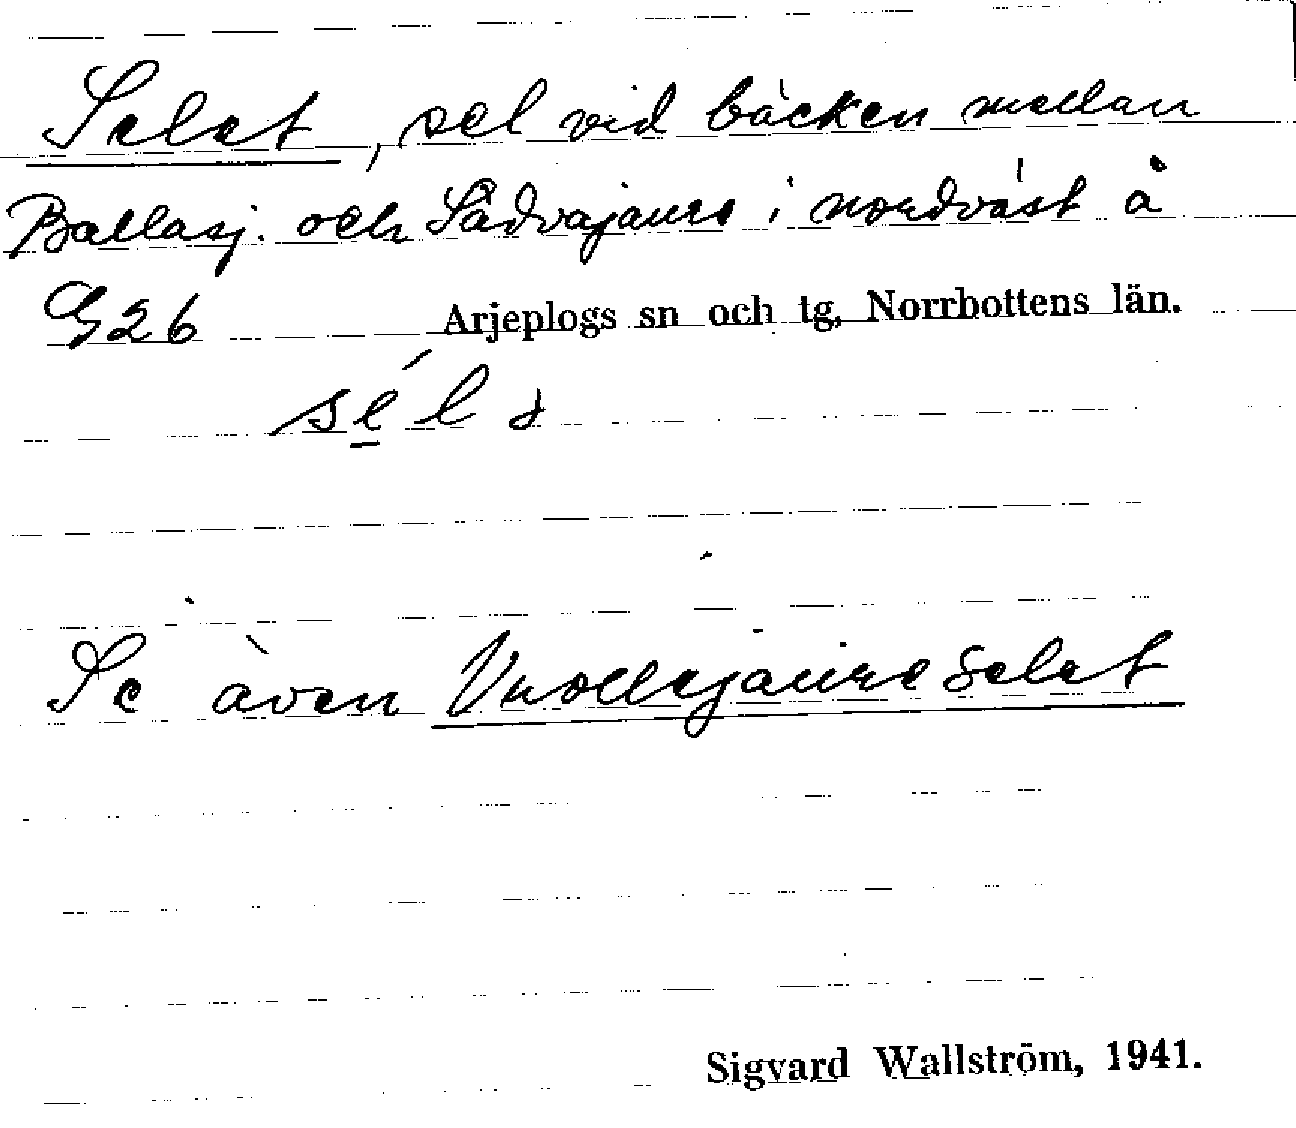 Selet, sel vid bäcken mellan
Ballasj. och Sädvajaure i nordväst å
G26 Arjeplogs sn och tg, Norrbottens län.
sé̱lə
Se även Vuollejaureselet
Sigvard Wallström, 1941.